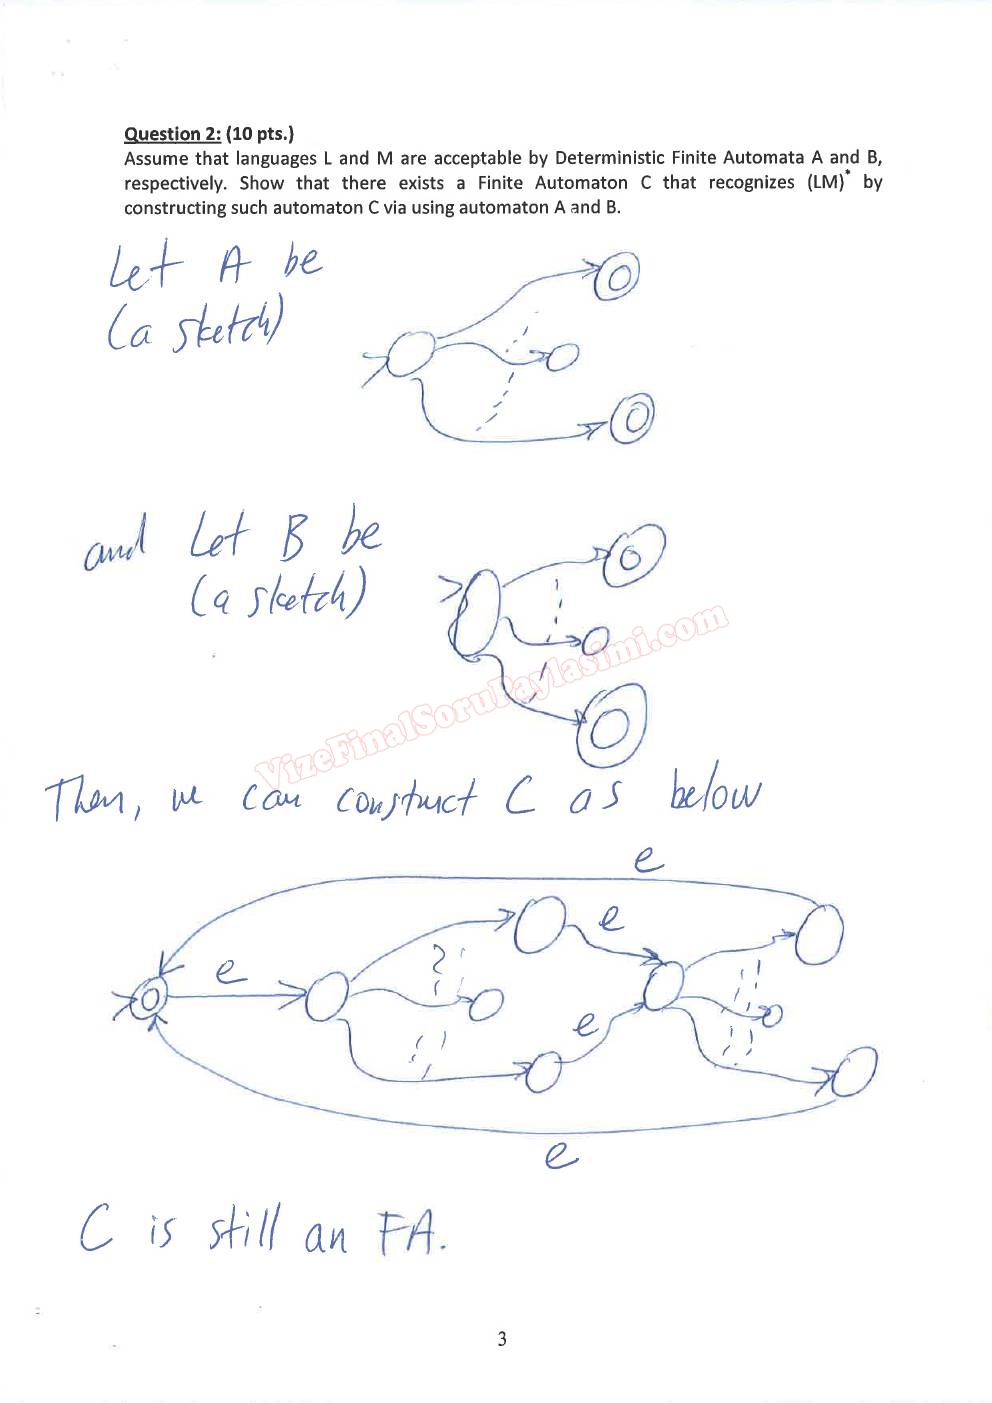 Question 2: (10 pts.)
Assume that languages L and M are acceptable by Deterministic Finite Automata A and B,
respectively. Show that there exists a Finite Automaton C that recognizes (LM)* by
constructing such automaton C via using automaton A and B.
Let A be
(a sketch)
and Let B be
(a sketch)
VizeFinalSoruPaylasimi.com
Then, we can construct C as below
e
e
e
e
e
C is still an FA.
3